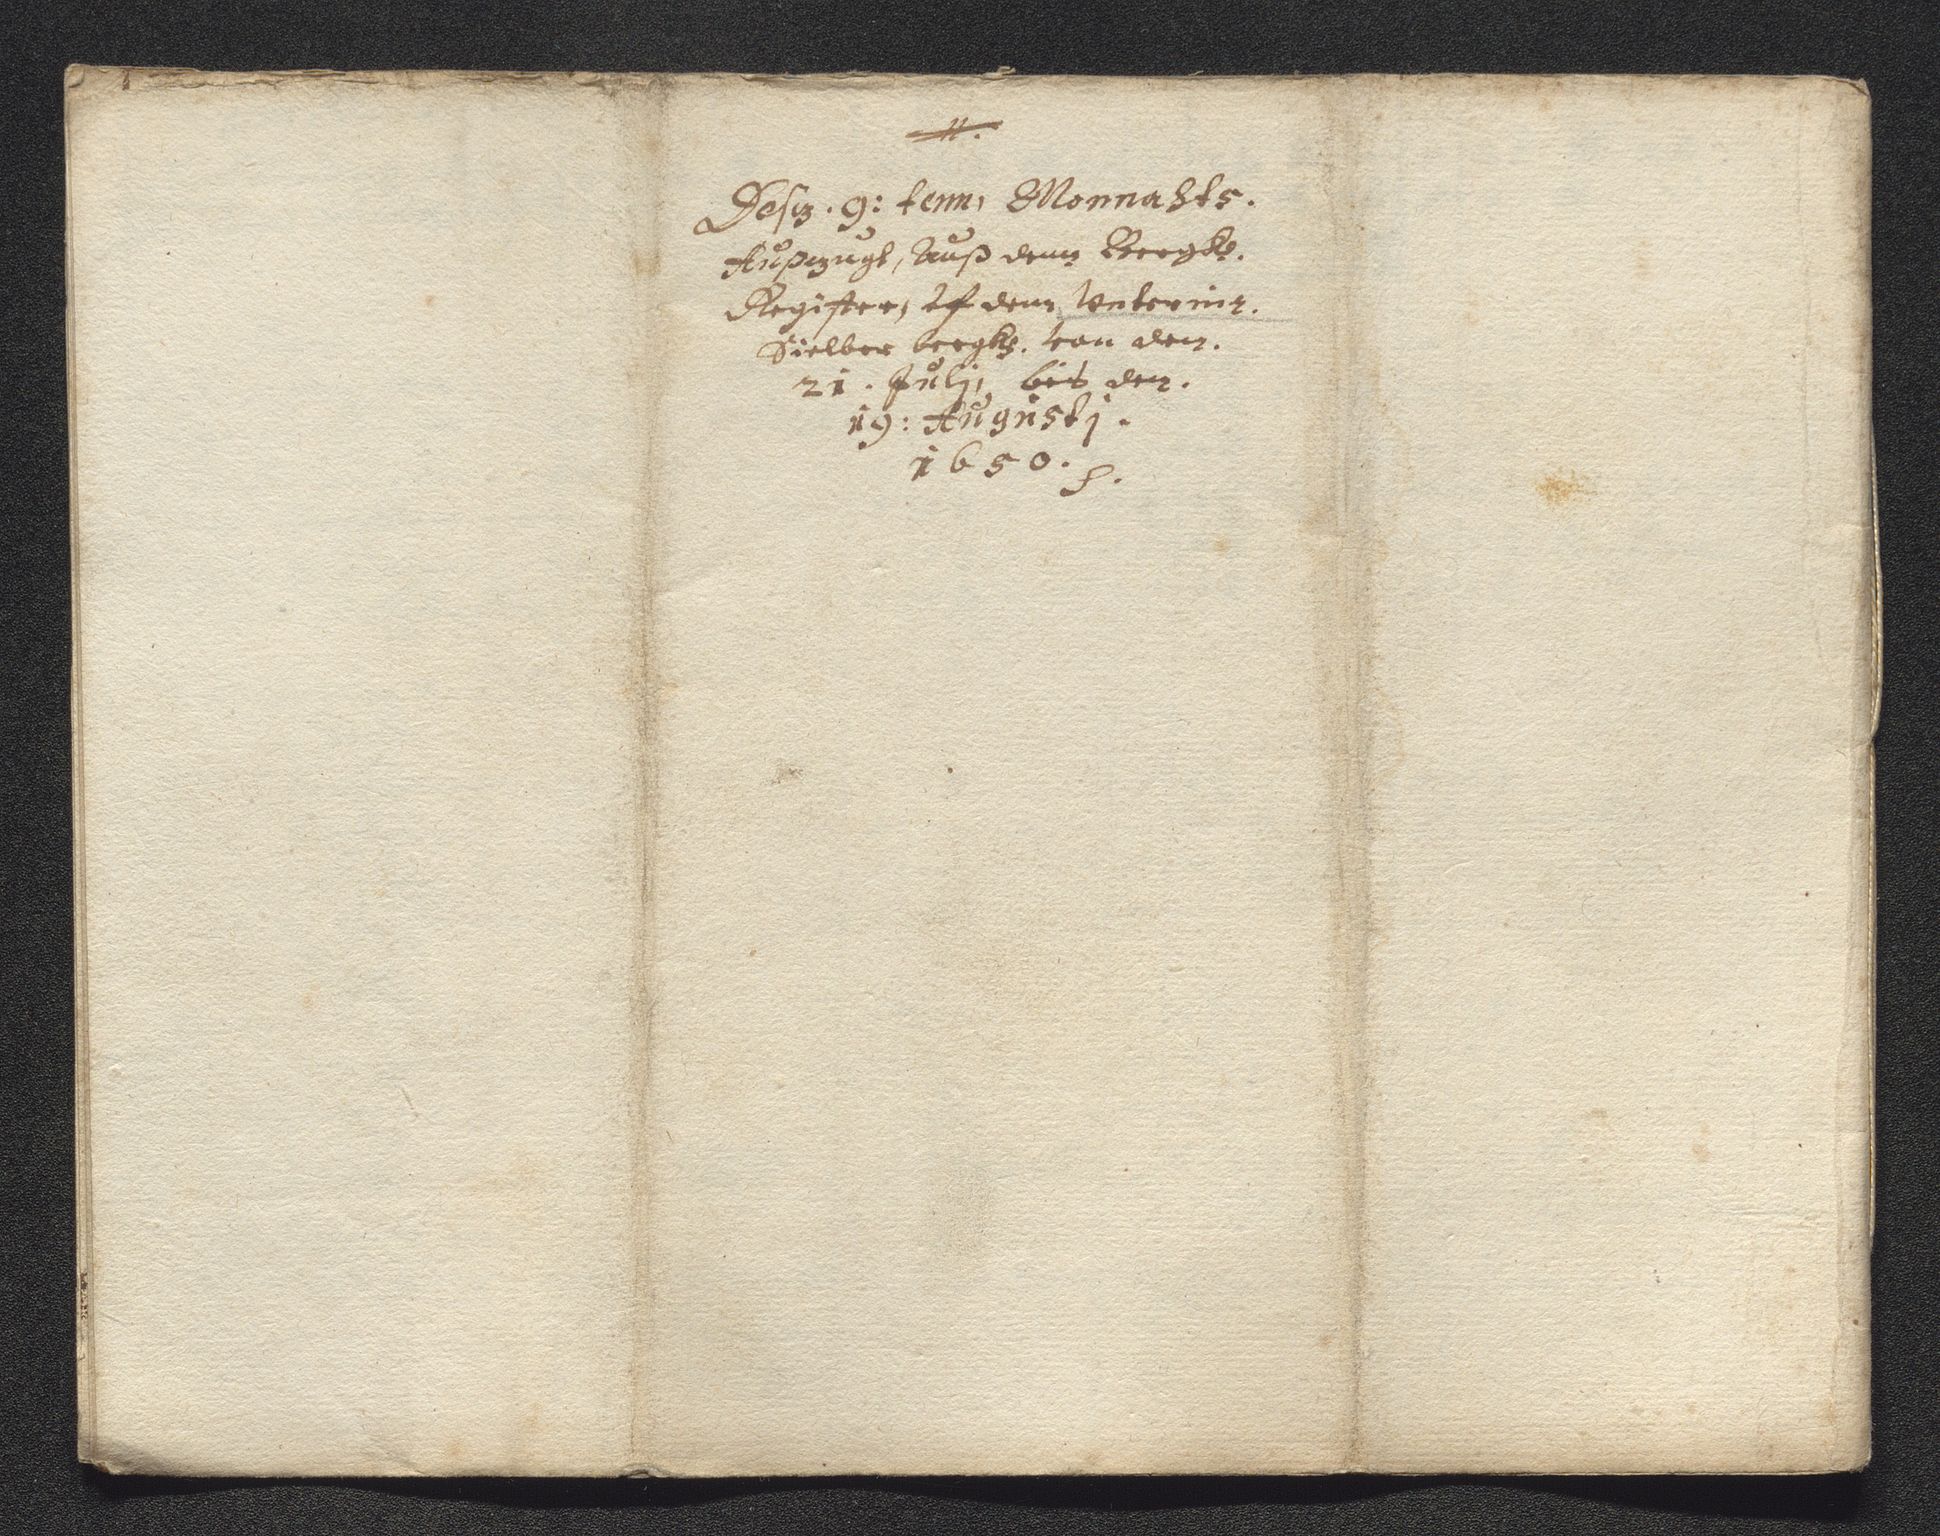 Desz . 9: tenn, Monnahts.
Außzugk, Auß denn Bergks.
Register, uf denn Unterim.
Sielber bergks. von den.
21 . Julj, bis den.
19: Augustj.
1650.